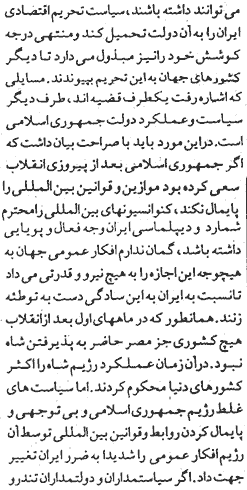 می توانند داشته باشند، سیاست تحریم اقتصادی
ایران را به آن دولت تحمیل کند و منتهی درجه
کوشش خود را نیز مبذول می دارد تا دیگر
کشورهای جهان به این تحریم بپیوندند. مسایلی
که اشاره رفت یکطرف قضیه اند، طرف دیگر
سیاست و عملکرد دولت جمهوری اسلامی
است. در این مورد باید با صراحت بیان داشت که
اگر جمهوری اسلامی بعد از پیروزی انقلاب
سعی کرده بود موازین و قوانین بین المللی را
پایمال نکند، کنوانسیونهای بین المللی را محترم
شمارد و دیپلماسی ایران وجه فعال و پویایی
داشته باشد، گمان ندارم افکار عمومی جهان به
هیچوجه این اجازه را به هیچ نیرو و قدرتی می داد
تا نسبت به ایران به این سادگی دست به توطئه
زنند. همانطور که در ماههای اول بعد از انقلاب
هیچ کشوری جز مصر حاضر به پذیرفتن شاه
نبود. در آن زمان عملکرد رژیم شاه را اکثر
کشورهای دنیا محکوم کردند. اما سیاست های
غلط رژیم جمهوری اسلامی و بی توجهی و
پایمال کردن روابط و قوانین بین المللی توسط آن
رژیم افکار عمومی را شدیدا به ضرر ایران تغییر
جهت داد. اگر سیاستمداران و دولتمداران تندرو